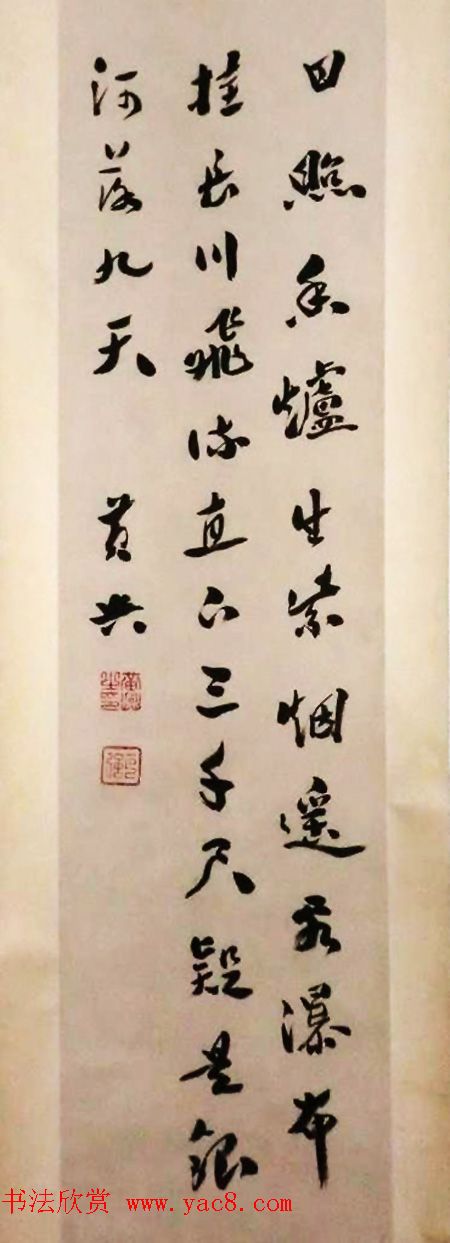 日照香爐生紫烟遥看瀑布
挂長川飛流直下三千尺疑是銀
河落九天 黄興
书法欣赏 www.yac8.com